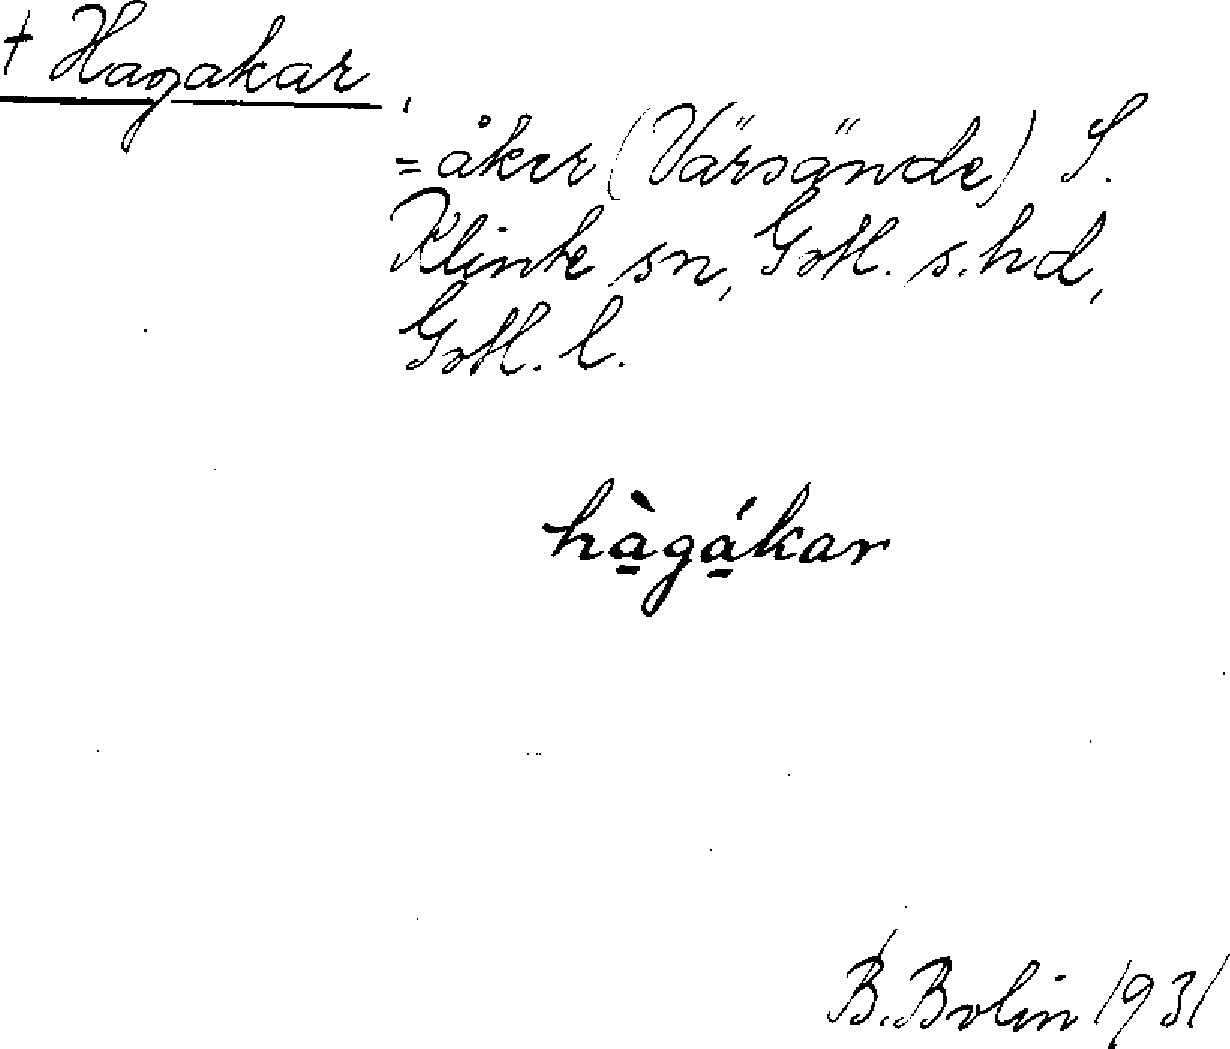 † Hagakar,
= åker (Värsände) S.
Klinte sn, Gotl. s. hd,
Gotl. l.
hà̱gá̱kar
B. Bolin 1931